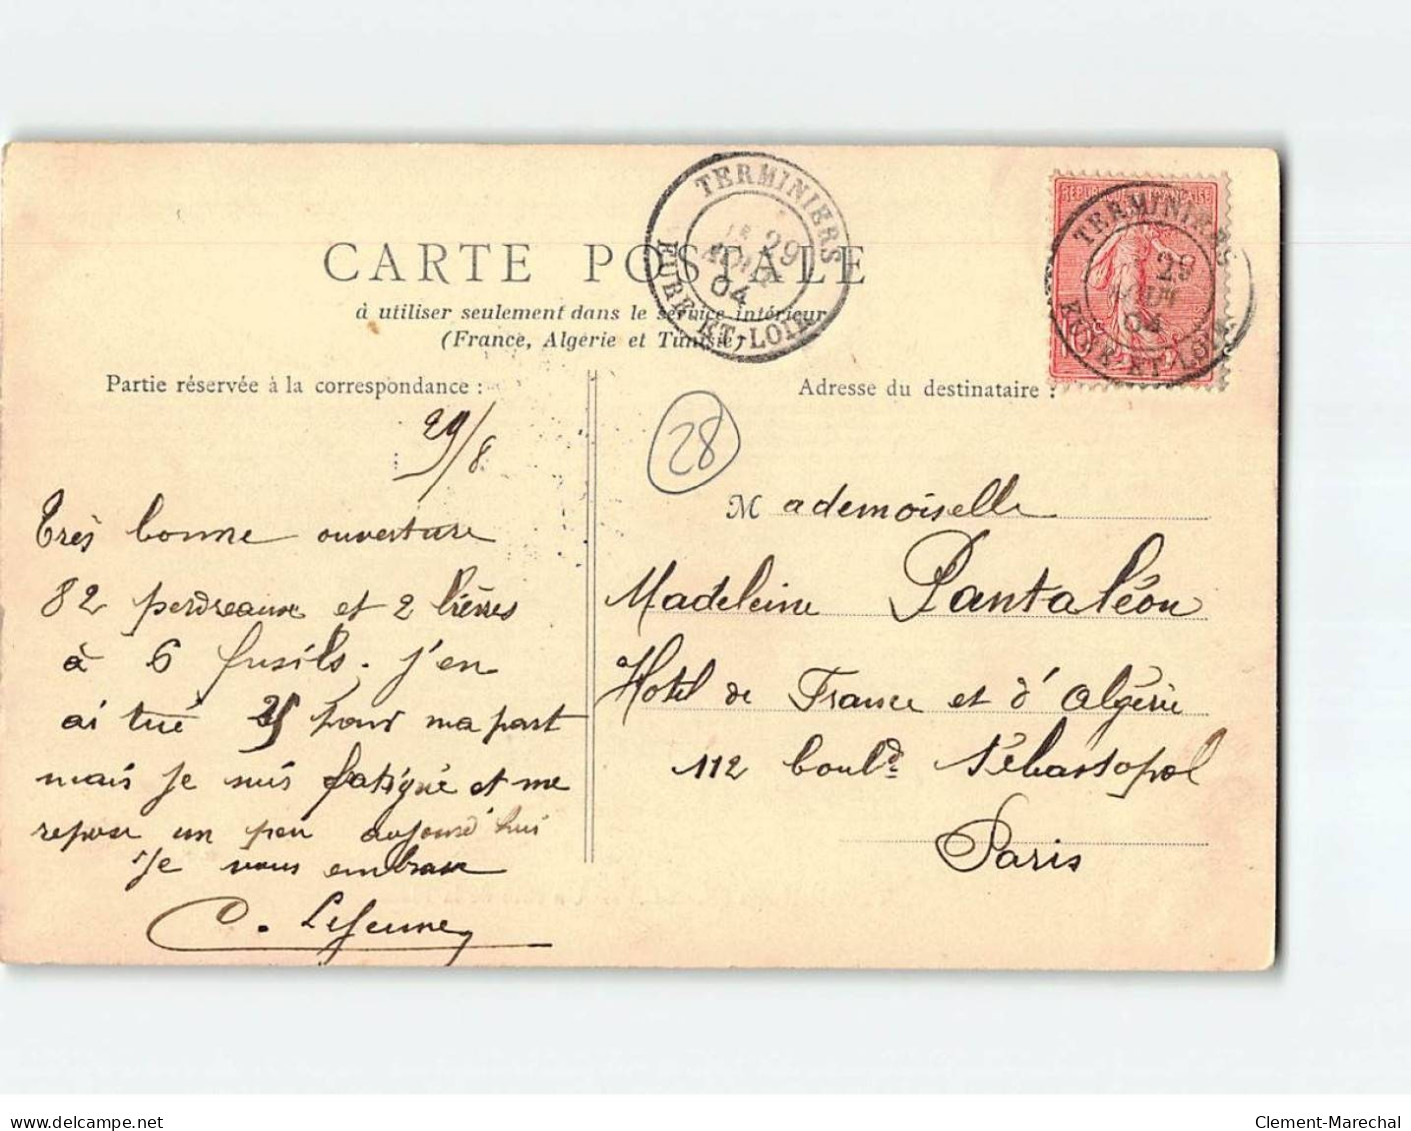 TERMINIERS
29
AOUT
04
EURE-ET-LOIR
REPUBLIQUE FRANÇAISE
TERMINIERS
29
AOUT
04
EURE-ET-LOIR
CARTE POSTALE
à utiliser seulement dans le service intérieur
(France, Algérie et Tunisie)
Partie réservée à la correspondance :
Adresse du destinataire :
29/8
Très bonne ouverture
82 perdreaux et 2 lièvres
à 6 fusils. j'en
ai tué 25 pour ma part
mais je suis fatigué et me
repose un peu aujourd'hui
Je vous embrasse
C. Lejeune
28
Mademoiselle
Madeleine Pantaléon
Hotel de France et d'Algérie
112 boulᵈ Sébastopol
Paris
www.delcampe.net
Clement-Marechal